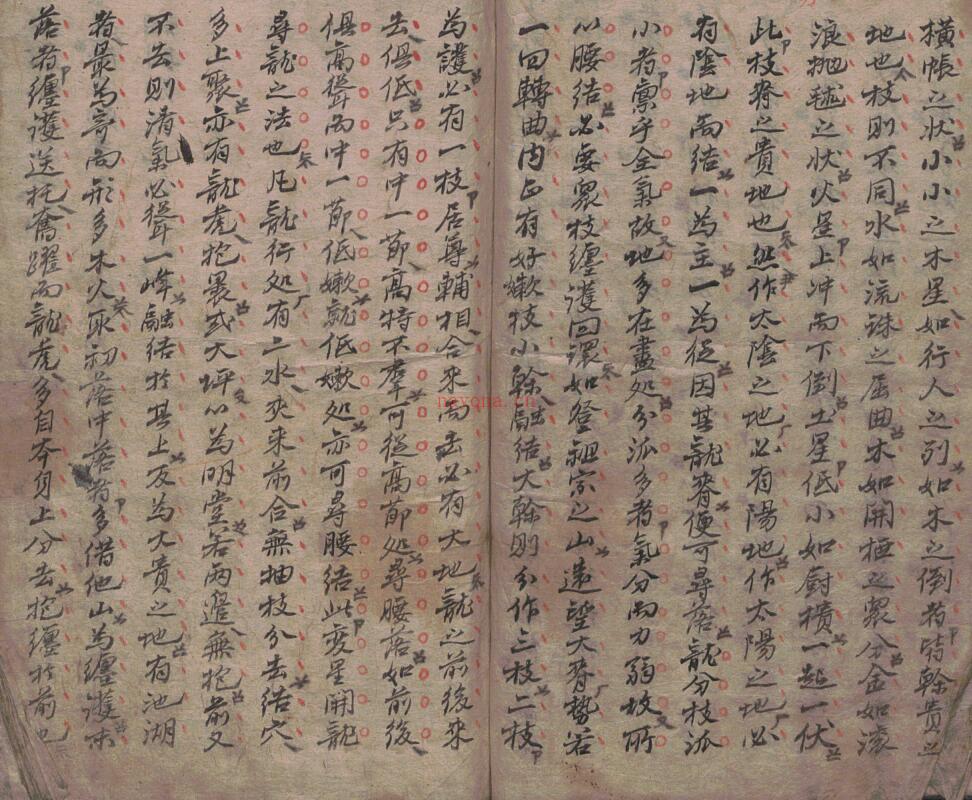 橫帳之狀小小之木星如行人之列如木之倒者皆榦貴之
地也枝則不同水如流珠之屈曲木如開極之眾分金如滚
浪抛毬之狀火星上冲而下倒土星低小如廚横一起一伏
此枝脊之貴地也然作太陰之地必有陽地作太陽之地必
有陰地而结一為主一為従因其龍脊便可尋落龍分枝派
小者禀乎全氣故地多在盡処分派多者氣分而力弱故所
以腰结必要眾枝纏護回環如登祖宗之山遠望大脊勢若
一回轉曲内必有好嫩枝小榦融结大榦則分作三枝二枝
為護必有一枝居尊輔相合來而去必有大地龍之前後來
去俱低只有中一節高特不羣可従高節処尋腰落如前後
俱高聳而中一節低嫩就低嫩処亦可尋腰结此変星開龍
尋龍之法也凡龍行処有二水夾來前合無抽枝分去结穴
多上聚亦有龍虎抱裹或大坪以為明堂若兩邉無抱前又
不去則清氣必聳一峰融结於其上反為大貴之地有池湖
者最為奇而形多木火取初落中落者多借他山為纏護末
落者纏護送托奮躍而龍虎多自夲身上分去抱纏於前也
nayona.cn